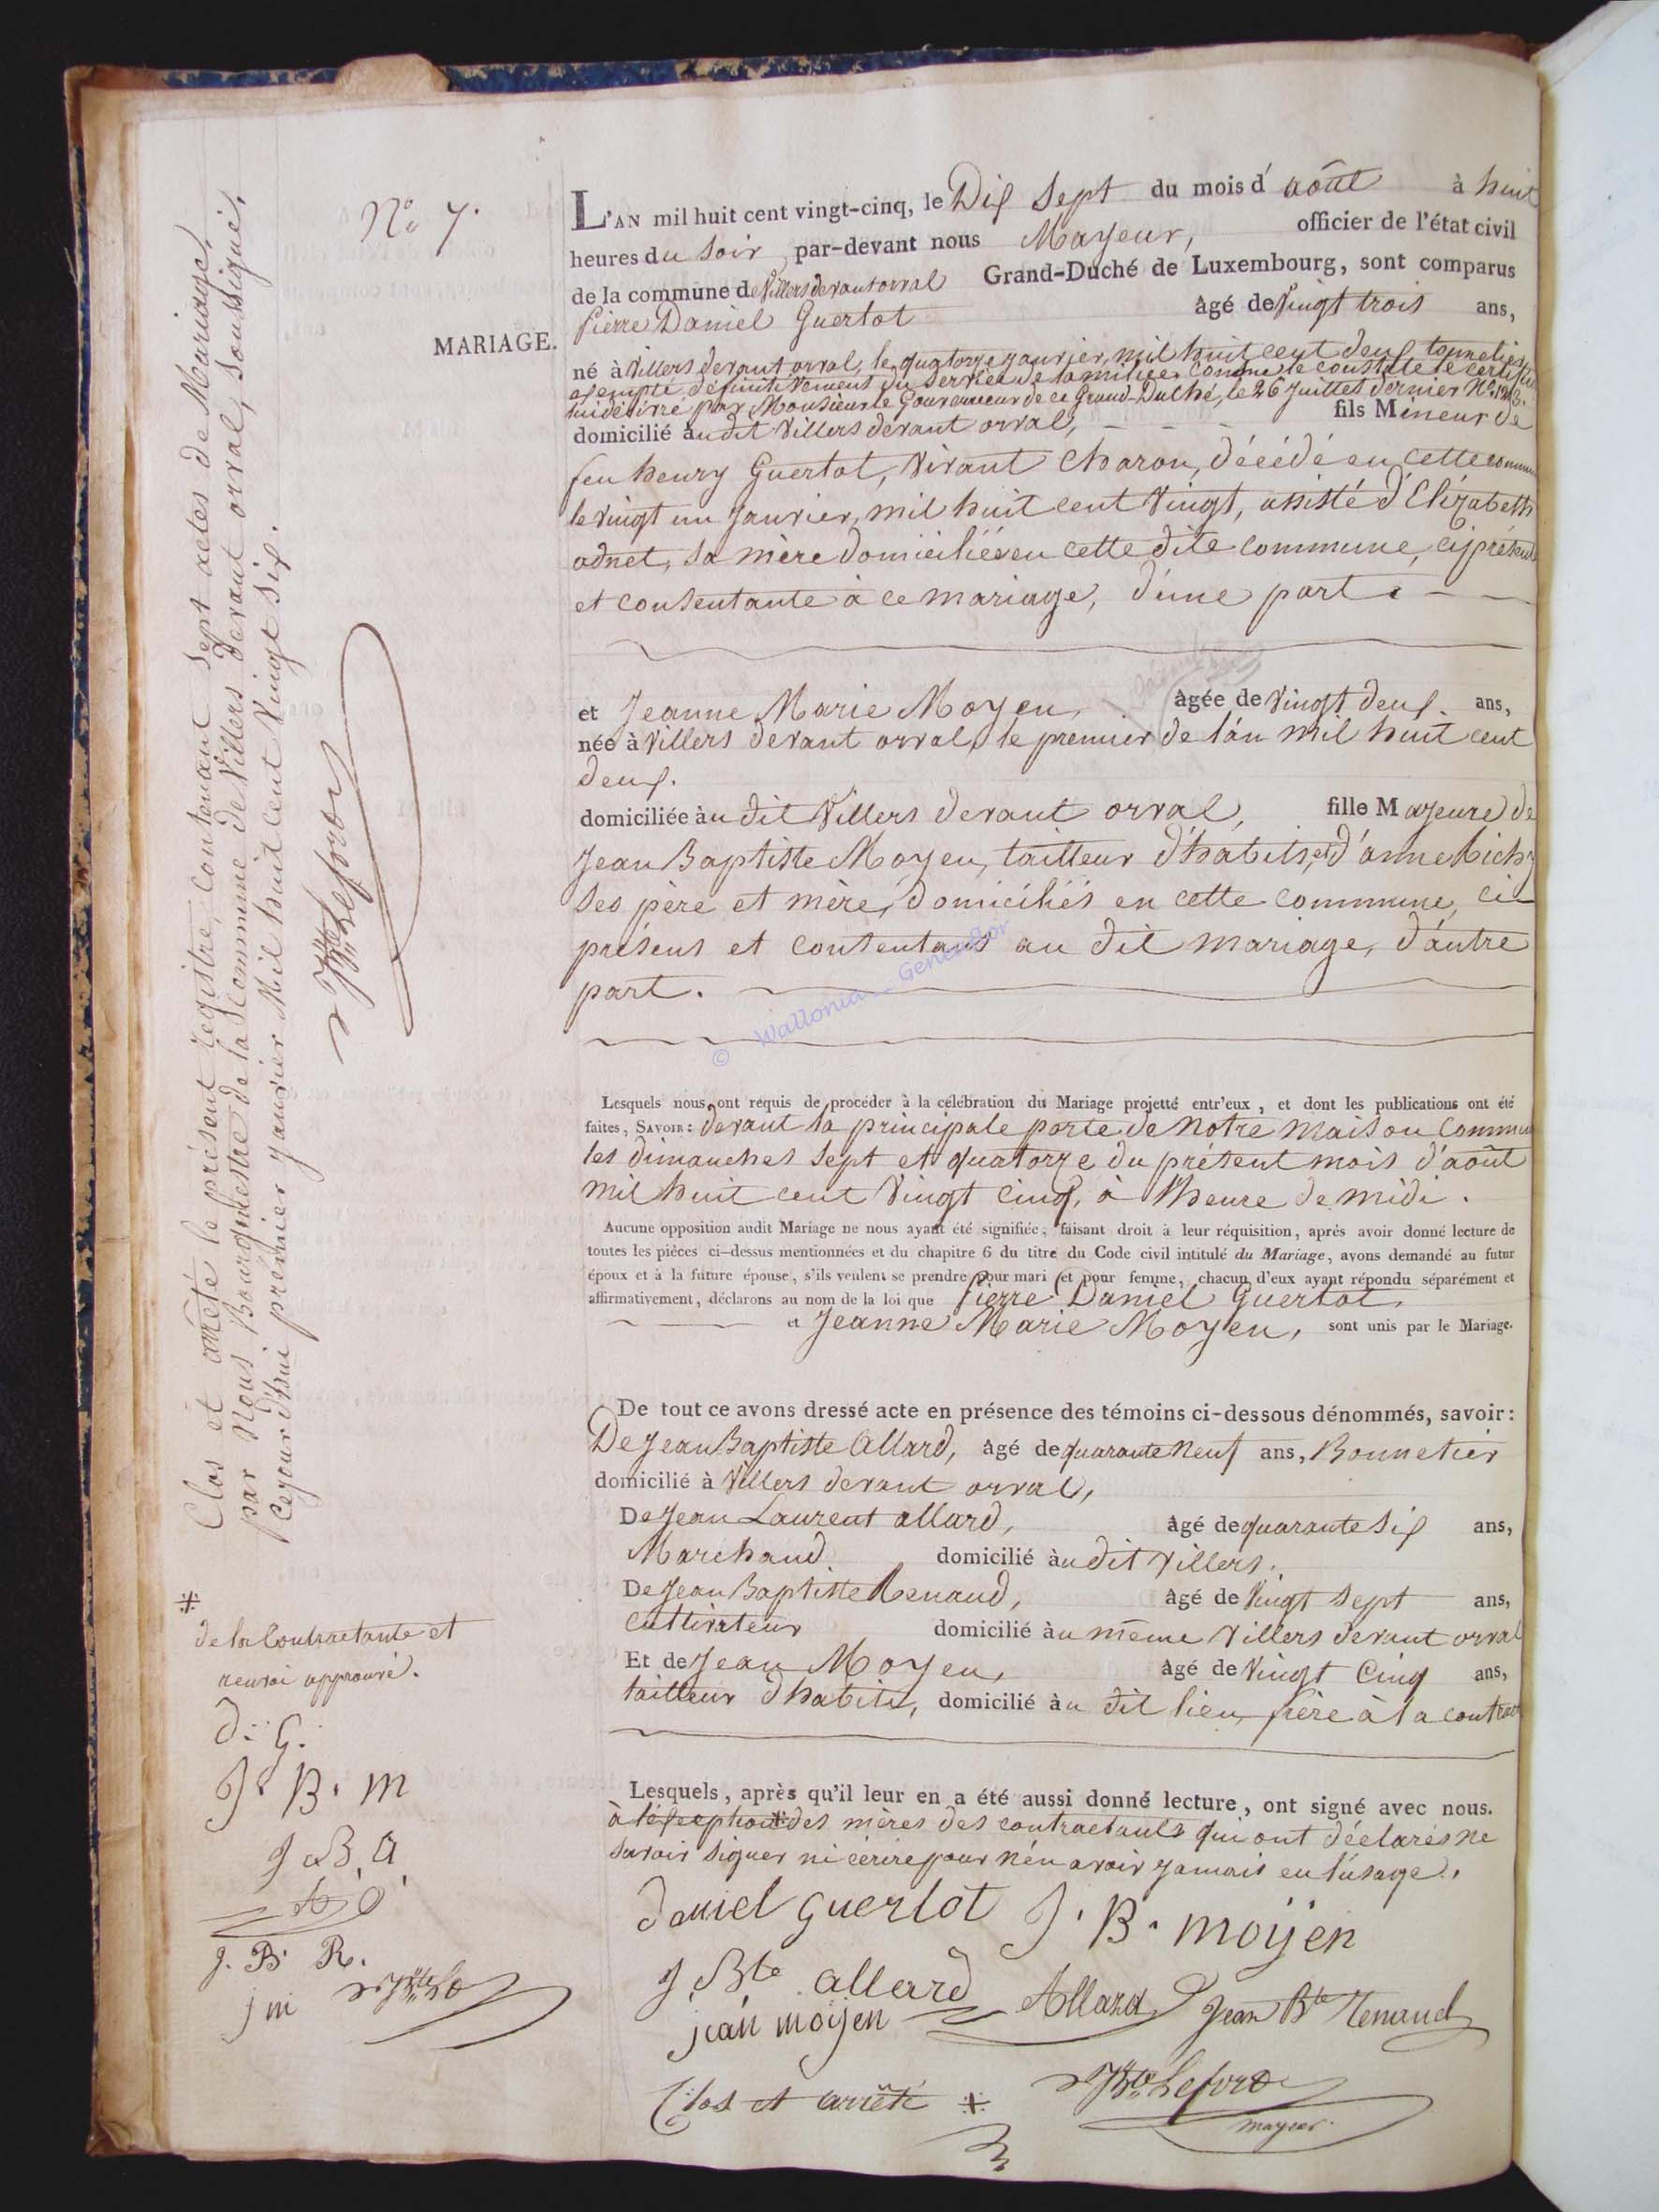 N.o 7.
MARIAGE.
L'AN mil huit cent vingt-cinq, le Dix Sept du mois d'août à huit
heures du soir par-devant nous Mayeur, officier de l'état civil
de la commune de Villers devant orval Grand-Duché de Luxembourg, sont comparus
Pierre Daniel Guerlot âgé de Vingt trois ans,
né à Villers devant orval, le quatorze janvier, mil huit cent deux, tonnelier,
exempté définitivement du service de la milice, comme le constate le certificat
lui délivré par Monsieur le Gouverneur de ce Grand-Duché, le 26 juillet dernier
domicilié au dit Villers devant orval, fils Mineur de
feu henry Guerlot, vivant Charon, décédé en cette commune
le vingt un janvier, mil huit cent Vingt, assisté d'Elizabeth
odnet, sa mère domiciliée en cette dite commune, ci présente
et consentante à ce mariage, d'une part.
et Jeanne Marie Moyen, âgée de Vingt deux ans,
née à Villers devant orval, le premier de l'an mil huit cent
deux.
domiciliée au dit Villers devant orval, fille Majeure de
Jean Baptiste Moyen, tailleur d'habits, et d'anne Richy
ses père et mère, domiciliés en cette commune, ci
présens et consentans au dit mariage, d'autre
part.
© Wallonia Genealogy
Lesquels nous ont requis de procéder à la célébration du Mariage projetté entr'eux, et dont les publications ont été
faites, SAVOIR: devant la principale porte de notre maison commune
les dimanches sept et quatorze du présent mois d'août
mil huit cent Vingt cinq, à l'heure de midi.
Aucune opposition audit Mariage ne nous ayant été signifiée, faisant droit à leur réquisition, après avoir donné lecture de
toutes les pièces ci-dessus mentionnées et du chapitre 6 du titre du Code civil intitulé du Mariage, avons demandé au futur
époux et à la future épouse, s'ils veulent se prendre pour mari et pour femme, chacun d'eux ayant répondu séparément et
affirmativement, déclarons au nom de la loi que Pierre Daniel Guerlot,
et Jeanne Marie Moyen, sont unis par le Mariage.
De tout ce avons dressé acte en présence des témoins ci-dessous dénommés, savoir:
De Jean Baptiste Allard, âgé de quarante neuf ans, Bonnetier
domicilié à Villers devant orval,
De Jean Laurent allard, âgé de quarante six ans,
Marchand domicilié au dit Villers.
De Jean Baptiste Renaud, âgé de Vingt sept ans,
cultivateur domicilié au même Villers devant orval
Et de Jean Moyen, âgé de Vingt Cinq ans,
tailleur d'habits, domicilié au dit lieu, frère à la contractante
Lesquels, après qu'il leur en a été aussi donné lecture, ont signé avec nous.
à l'exception * des mères des contractants qui ont déclarés ne
savoir signer ni écrire pour n'en avoir jamais eu l'usage.
daniel guerlot J. B. moijen
J Bte allard Allard Jean Bte Renaud
jean moijen
Clos et arrêté *
JBte Lefort
mayeur.
Clos et arrêté le présent registre, contenant sept actes de Mariage,
par Nous Bourgmestre de la commune de Villers devant orval, soussigné,
Cejourd'hui premier janvier Mil huit cent Vingt six.
JBte Lefort
*
de la Contractante et
renvoi approuvé.
d. G.
J. B. M
J B. A
J. B. R.
j m